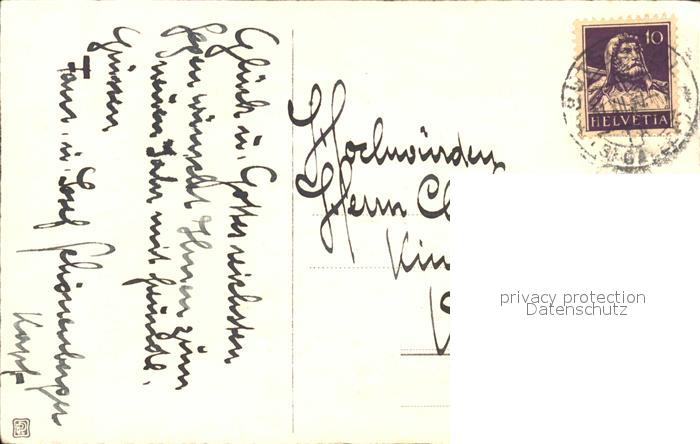 Glück u. Gottes reichsten
Segen wünscht Ihnen zum
neuen Jahr mit
Grüssen
Fam. u. Schönenberger
Hochwürden
Herrn
10
HELVETIA
privacy protection
Datenschutz